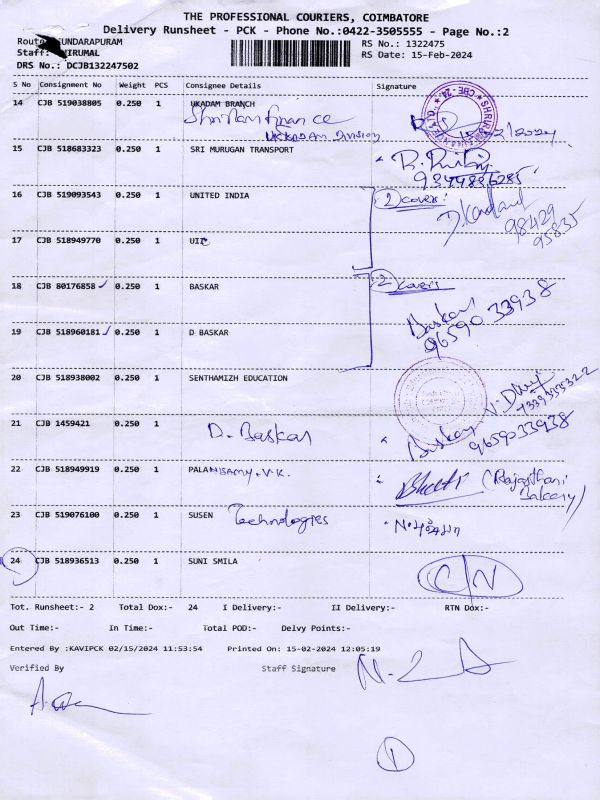 THE PROFESSIONAL COURIERS, COIMBATORE
Delivery Runsheet - PCK - Phone No.:0422-3505555 - Page No.:2
Route: SUNDARAPURAM RS No.: 1322475
Staff: RS Date: 15-Feb-2024
DRS No.: DCJB132247502
S No Consignment No Weight PCS Consignee Details Signature
14 CJB 519038805 0.250 1 UKADAM BRANCH
Shriram finance
15 CJB 518683323 0.250 1 SRI MURUGAN TRANSPORT
16 CJB 519093543 0.250 1 UNITED INDIA 2 covers
98429
95835
17 CJB 518949770 0.250 1 UII
18 CJB 80176858 0.250 1 BASKAR 2 covers
Baskar
9659033938
19 CJB 518960181 0.250 1 D BASKAR
20 CJB 518938002 0.250 1 SENTHAMIZH EDUCATION
21 CJB 1459421 0.250 1 D. Baskar Baskar
9659033938
22 CJB 518949919 0.250 1 PALANISAMY.V.K. (Rajasthani
Bakery)
23 CJB 519076100 0.250 1 SUSEN Technologies
24 CJB 518936513 0.250 1 SUNI SMILA C/N
Tot. Runsheet:- 2 Total Dox:- 24 I Delivery:- II Delivery:- RTN Dox:-
Out Time:- In Time:- Total POD:- Delvy Points:-
Entered By :KAVIPCK 02/15/2024 11:53:54 Printed On: 15-02-2024 12:05:19
Verified By Staff Signature
1